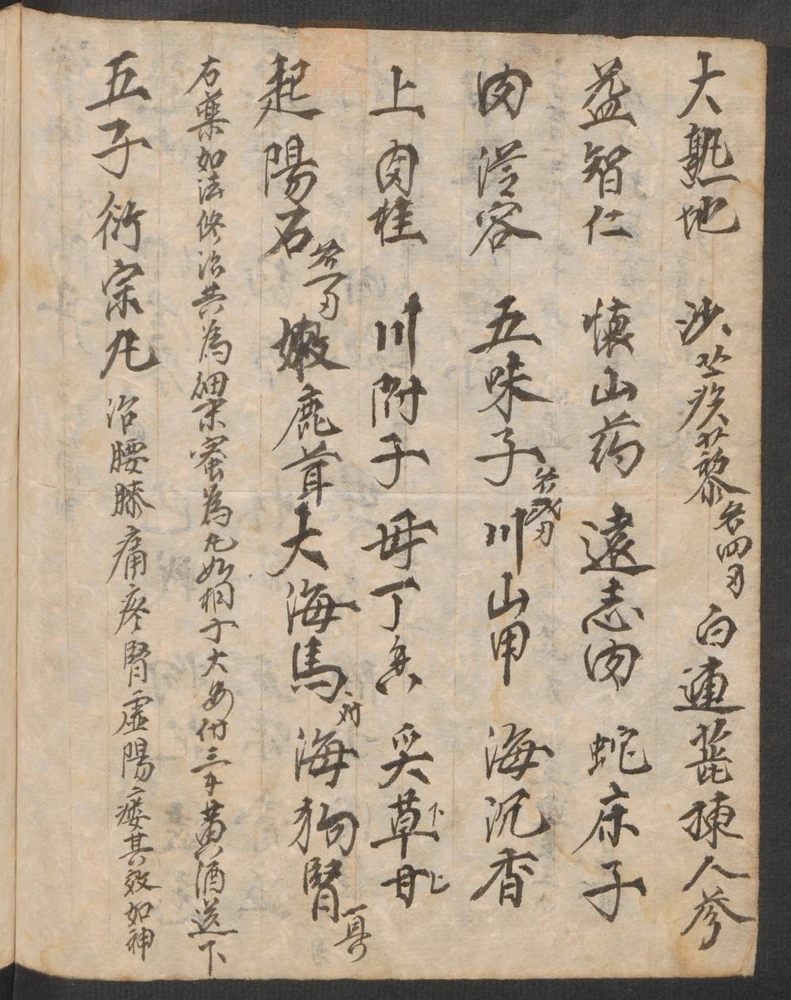 大熟地 沙苁疾藜各四刃 白連蕋 揀人參
益智仁 懷山药 遠志肉 蛇床子
肉從容 五味子共貳刃 川山甲 海沉香
上肉桂 川附子 母丁香 炙草
起陽石共一刃 嫩鹿茸 大海馬一对 海狗腎一具
右藥如法修治共為細末蜜為丸如桐子大每付三十黄酒送下
五子衍宗丸 治腰膝痛疼腎虛陽痿其效如神